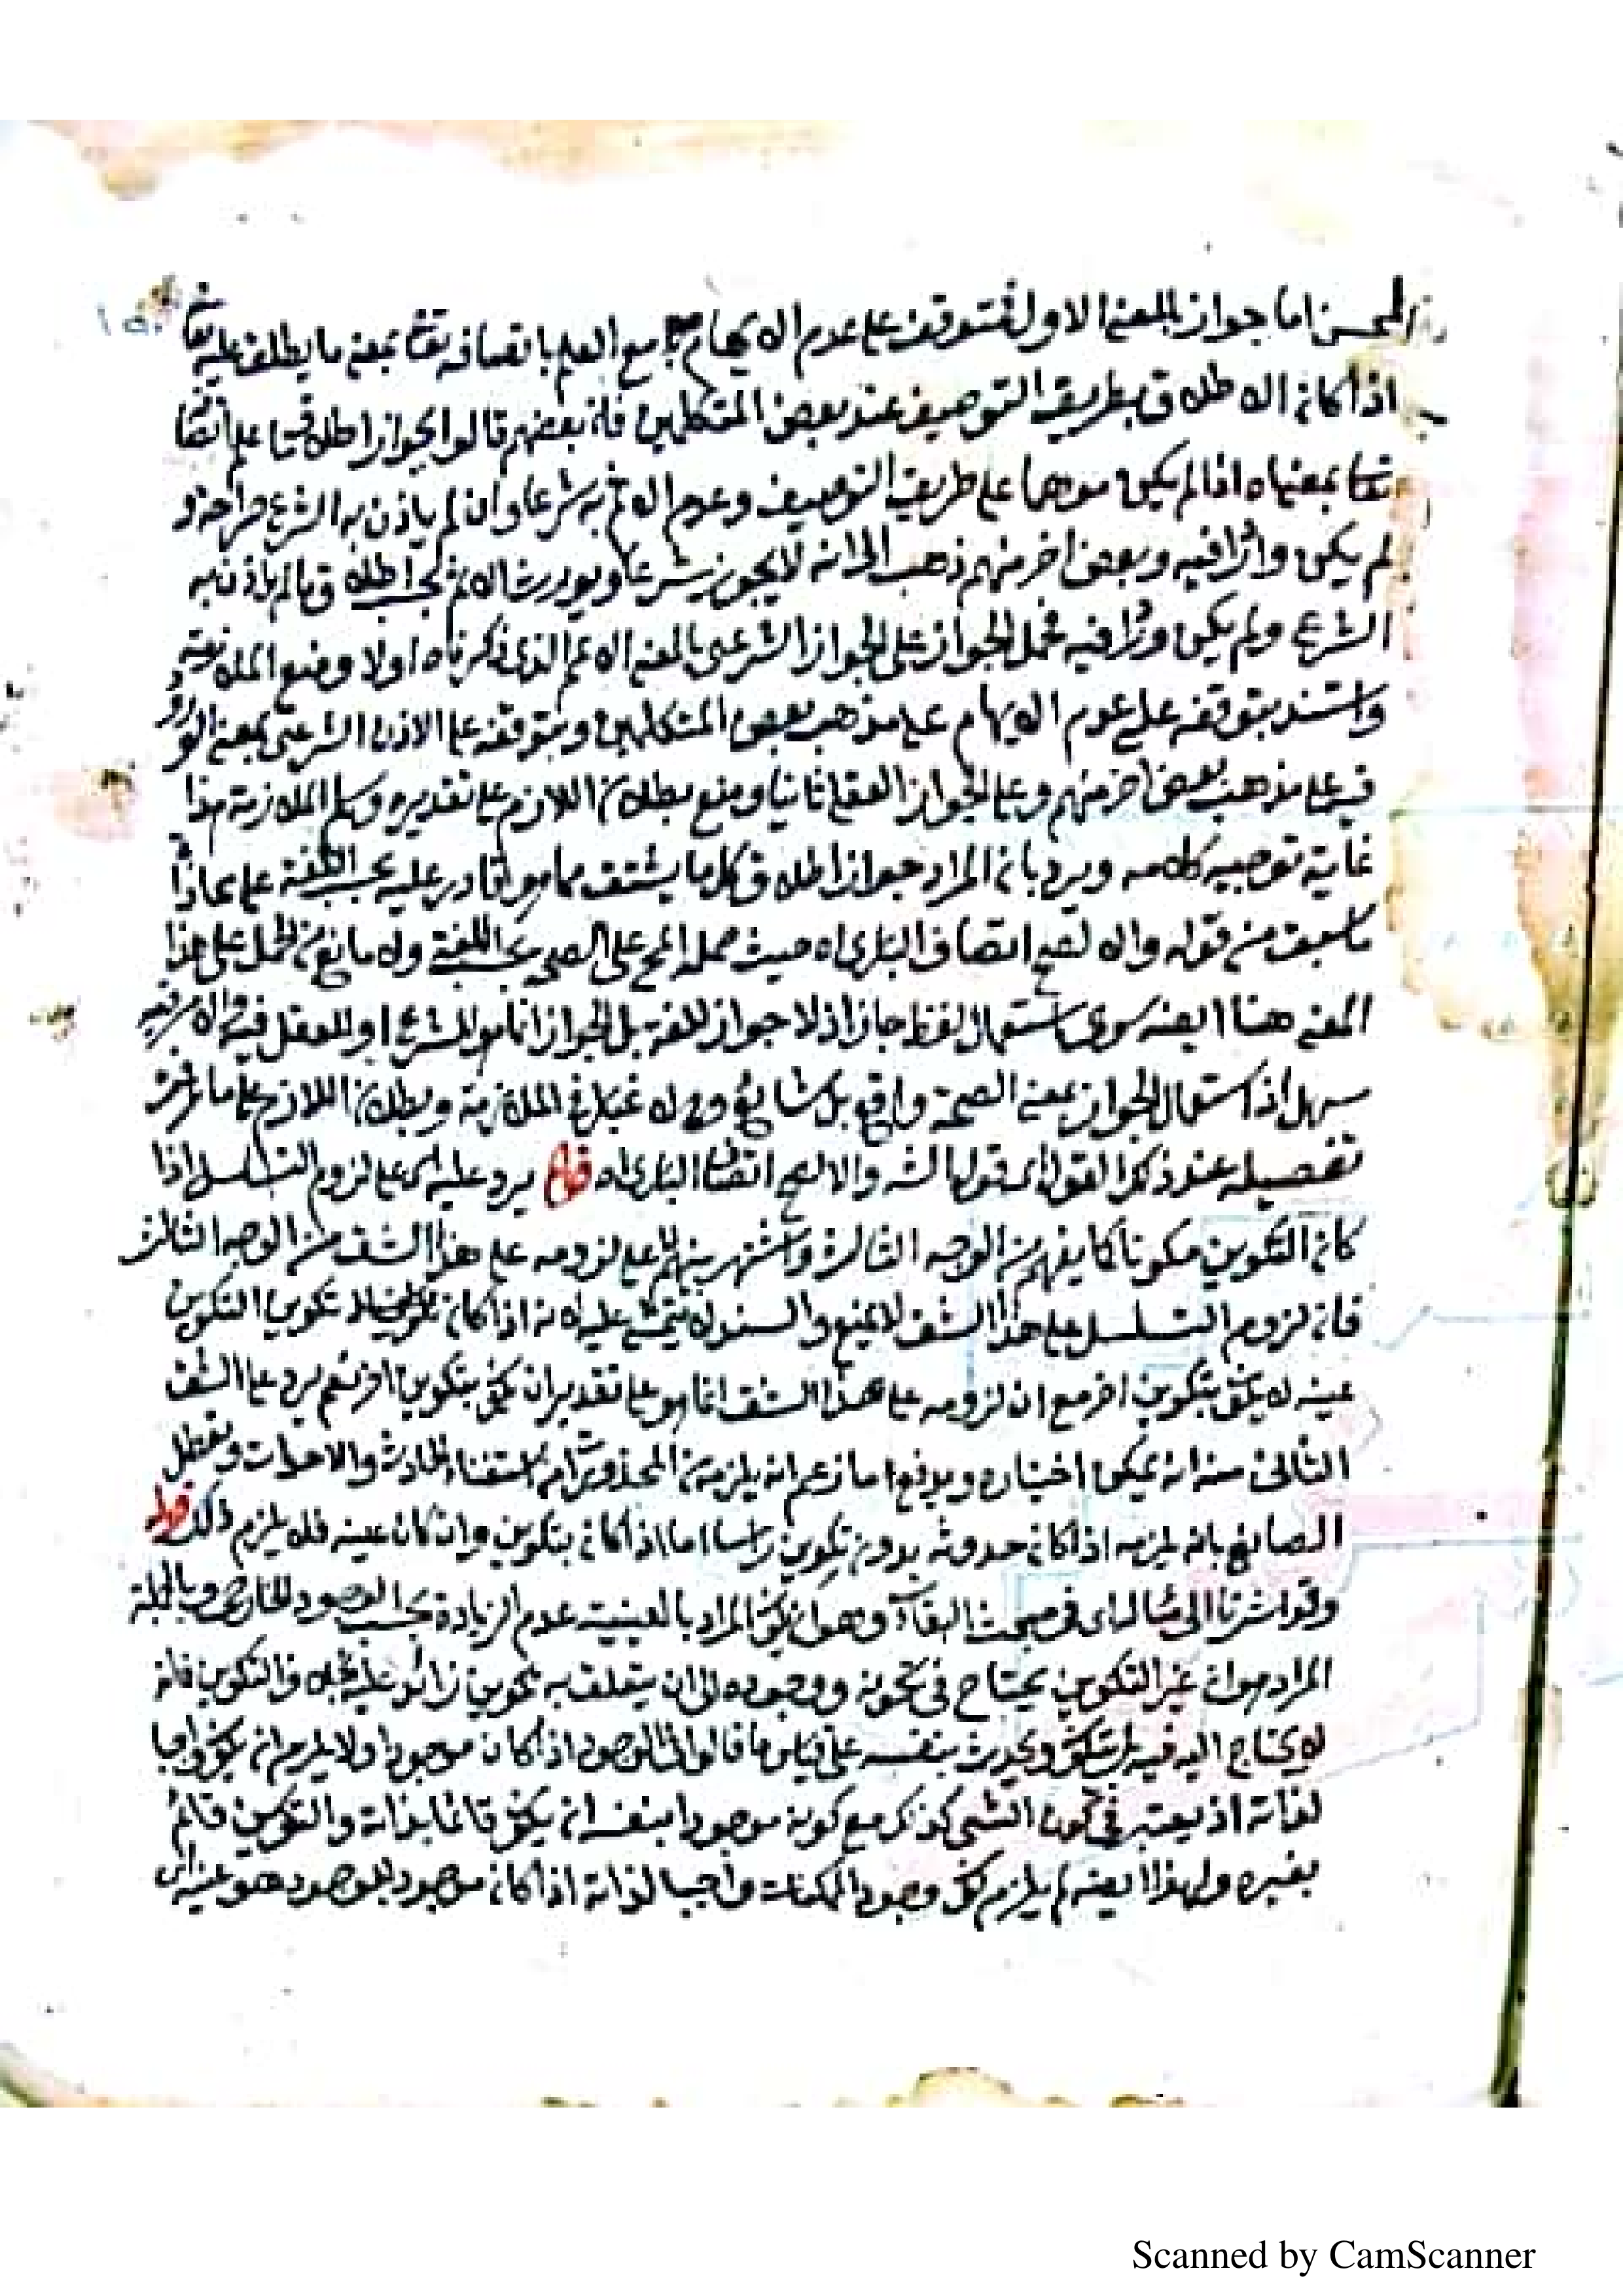 المحسن اما جوازه بالمعنى الاول فتتوقف على عدم الايهام مع العلم باتصافه تعا بمعنى ما يطلق عليه تعا
اذا كان الاطلاق بطريق التوصيف عند بعض المتكلمين فان بعضهم قالوا بجواز اطلاق ما علم اتصا
تعا بمعناه اذا لم يكن موهما على طريق التوصيف وعدم الاثم به شرعا وان لم ياذن به الشرع صراحة و
لم يكن وارد فيه وبعض اخر منهم ذهب الى انه لا يجوز شرعا ويورث الاثم بحسبه اطلاق ما لم ياذن به
الشرع ولم يكن فيه فحمل الجواز على الجواز الشرعي بالمعنى الاعم الذي ذكرناه اولا ومنع الملازمة
واستند بتوقفه على عدم الايهام على مذهب بعض المتكلمين وبتوقفه على الاذن الشرعي بمعنى الورود
فيه على مذهب بعض اخر منهم وعلى الجواز العقلي ثانيا ومنع بطلان اللازم على تقديره وسلم الملازمة هذا
غاية توجيه كلامه ويرد بان المراد جواز اطلاق كل ما يشتق مما هو قادر عليه بحسب اللغة على محاذاة
ما سبق من قوله والا لصح اتصاف الباري اه حيث حمله المح على الصحة بحسب اللغة ولا مانع من الحمل على هذا
المعنى هنا ايضا سوى استعمال لفظ جاز اذ لا جواز للغة بل الجواز انما هو للشرع او للعقل فيه والامر فيه
سهل اذ استعمال الجواز بمعنى الصحة واقع بل شايع وح لا غبار في الملازمة وبطلان اللازم على ما عرفت
تفصيله عند ذكر القول اي قول الش والا لصح اتصاف الباري اه قوله يرد عليه اي على لزوم التسلسل اذا
كان التكوين مكونا كما يفهم من الوجه الثالث واشتهر بينهم على لزومه على هذا الشق من الوجه الثالث
فان لزوم التسلسل على هذا الشق لا يمنع والسند لا يتمشى عليه لانه اذا كان تكوين التكوين
عينه لا يكون بتكوين اخر مع ان لزومه على هذا الشق انما هو على تقدير ان يكون بتكوين اخر نعم يرد على الشق
الثاني منه انه يمكن اختياره ويدفع ما زعم انه يلزمه من المحذور من استغناء الحادث والاحداث وتعطل
الصانع بانه يلزمه اذا كان حدوثه بدون تكوين راسا اما اذا كان بتكوين وان كان عينه فلا يلزم ذلك قوله
وقد اشرنا الى مثاله اي في مبحث البقاء وهو ان يكون المراد بالعينية عدم الزيادة بحسب الوجود الخارجي وبالجملة
المراد هو ان غير التكوين يحتاج في تكونه ووجوده الى ان يتعلق به تكوين زائد عليه بخلاف التكوين فانه
لا يحتاج اليه فيه بل يتكون ويحدث بنفسه على قياس ما قالوا ان الوجود اذا كان موجودا لا يلزم ان يكون واجبا
لذاته اذ يعتبر في كون الشي كذلك مع كونه موجودا بنفسه ان يكون قائما بذاته والتكوين قائم
بغيره ولهذا ايضا لم يلزم كون وجود الممكنات واجبا لذاته اذا كان موجودا بوجود هو عينه
Scanned by CamScanner